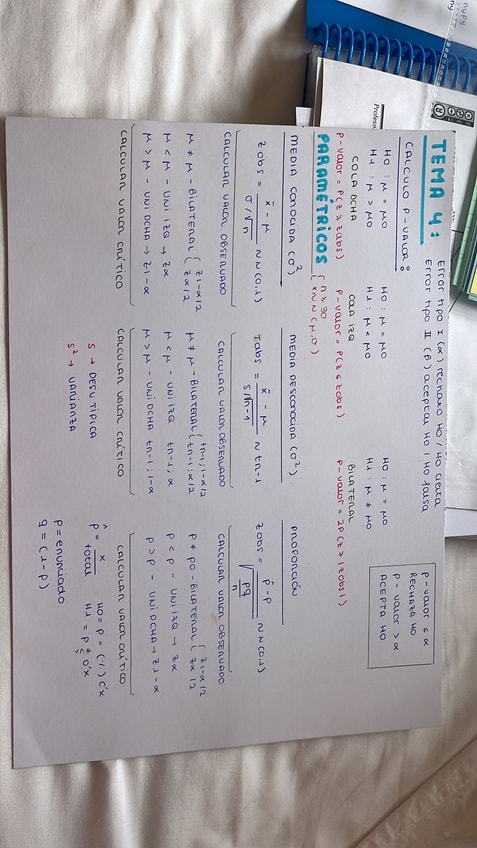 TEMA 4:
Error tipo I (α) rechazo H0 / H0 cierta
Error tipo II (β) aceptar H0 / H0 falsa
CALCULO P-VALOR:
H0 : μ = μ0
H1 : μ > μ0
COLA DCHA
P-valor = P(Z ≥ Zobs)
H0 : μ = μ0
H1 : μ < μ0
COLA IZQ
P-valor = P(Z ≤ Zobs)
H0 : μ = μ0
H1 : μ ≠ μ0
BILATERAL
P-valor = 2P(Z ≥ |Zobs|)
p-valor ≤ α
RECHAZA H0
p-valor > α
ACEPTA H0
PARAMÉTRICOS
n ≥ 30
x ~ N(μ,σ)
MEDIA CONOCIDA (σ²)
Zobs = x̄ - μ / σ/√n ~ N(0,1)
CALCULAR VALOR OBSERVADO
μ ≠ μ - BILATERAL { Z1-α/2
Zα/2
μ < μ - UNI IZQ → Zα
μ > μ - UNI DCHA → Z1-α
CALCULAR VALOR CRÍTICO
MEDIA DESCONOCIDA (σ²)
Tobs = x̄ - μ / S/√n-1 ~ tn-1
CALCULAR VALOR OBSERVADO
μ ≠ μ - BILATERAL { tn-1; 1-α/2
tn-1; α/2
μ < μ - UNI IZQ tn-1; α
μ > μ - UNI DCHA tn-1; 1-α
CALCULAR VALOR CRÍTICO
S → DESV TIPICA
S² → VARIANZA
PROPORCIÓN
Zobs = p̂ - p / √pq/n ~ N(0,1)
CALCULAR VALOR OBSERVADO
p ≠ p0 - BILATERAL { Z1-α/2
Zα/2
p < p - UNI IZQ → Zα
p > p - UNI DCHA → Z1-α
CALCULAR VALOR CRÍTICO
p̂ = x / total
H0 = p = (%) 0'x
H1 = p ≠ 0'x
p = enunciado
q = (1-p)